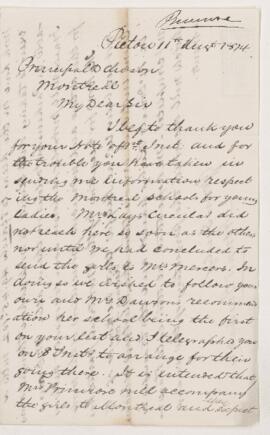 Primrose
Pictou 11th Augst 1874
Principal Dawson
Montreal
My Dear Sir
I beg to thank you
for your Note of 1st Inst. and for
the trouble you have taken in
sending me information respect
ing the Montreal schools for young
Ladies. Mrs Lays Circular did
not reach here so soon as the others
nor until we had concluded to
send the girls to Mrs Mercers. In
doing so we wished to follow your
own and Mrs Dawsons recommend
ation her school being the first
on your list and I telegraphed you
on 8th Inst to arrange for their
going there. It is intended that
Mrs Primrose will accompany
the girls to Montreal and expect